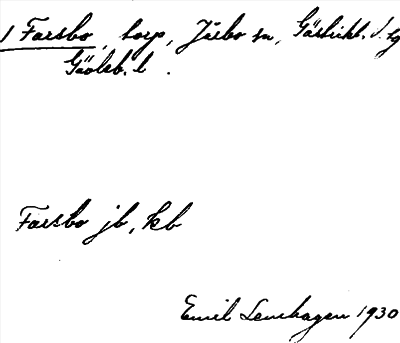 1 Farsbo, torp, Järbo sn, Gästrikl. d. tg
Gävleb. l.
Farsbo jb, kb
Emil Lenhagen 1930